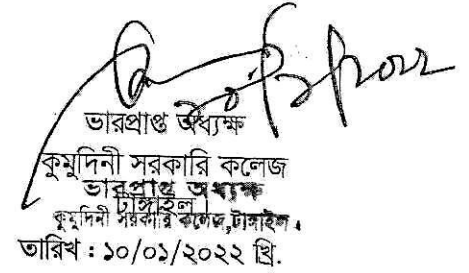 ভারপ্রাপ্ত অধ্যক্ষ
কুমুদিনী সরকারি কলেজ
ভারপ্রাপ্ত অধ্যক্ষ
টাঙ্গাইল।
কুমুদিনী সরকারি কলেজ,টাঙ্গাইল।
তারিখ : ১০/০১/২০২২ খ্রি.